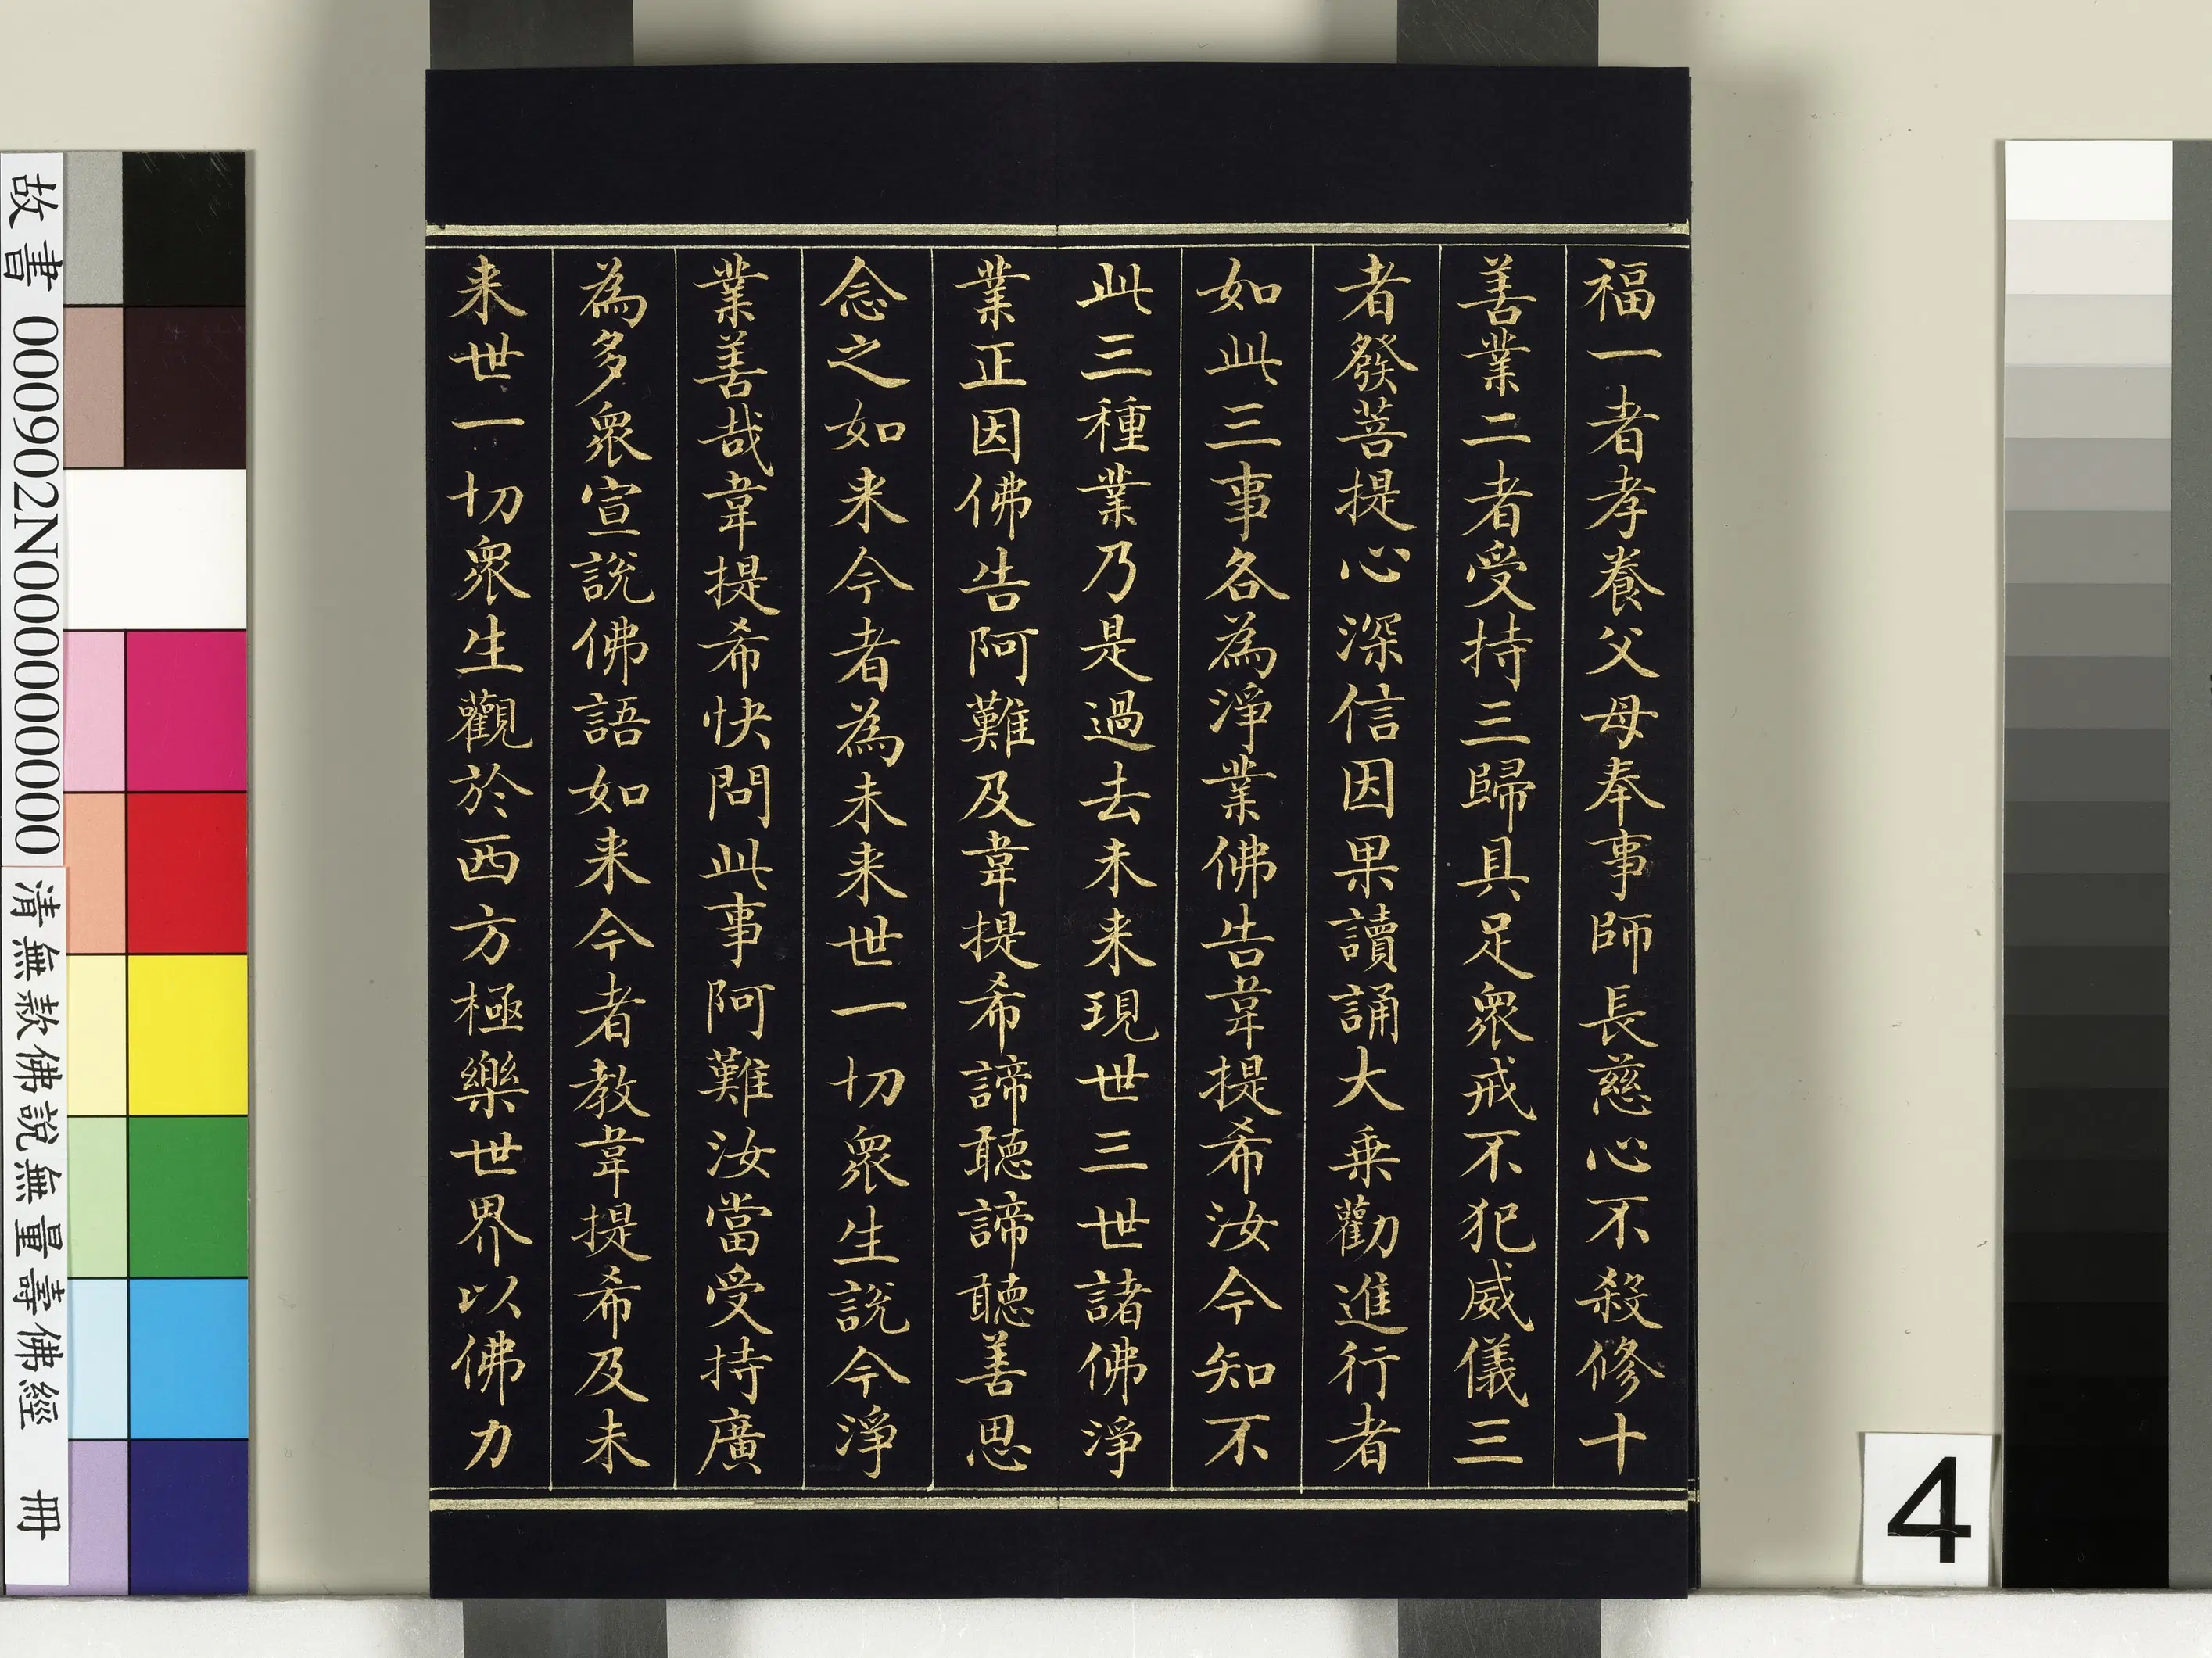 福一者孝養父母奉事師長慈心不殺修十
善業二者受持三歸具足衆戒不犯威儀三
者發菩提心深信因果讀誦大乗勸進行者
如此三事各為淨業佛告韋提希汝今知不
此三種業乃是過去未来現世三世諸佛淨
業正因佛告阿難及韋提希諦聽諦聽善思
念之如来今者為未来世一切衆生説今淨
業善哉韋提希快問此事阿難汝當受持廣
為多衆宣説佛語如来今者教韋提希及未
来世一切衆生觀於西方極樂世界以佛力
故書 000902N000000000
清無款佛說無量壽佛經 冊
4